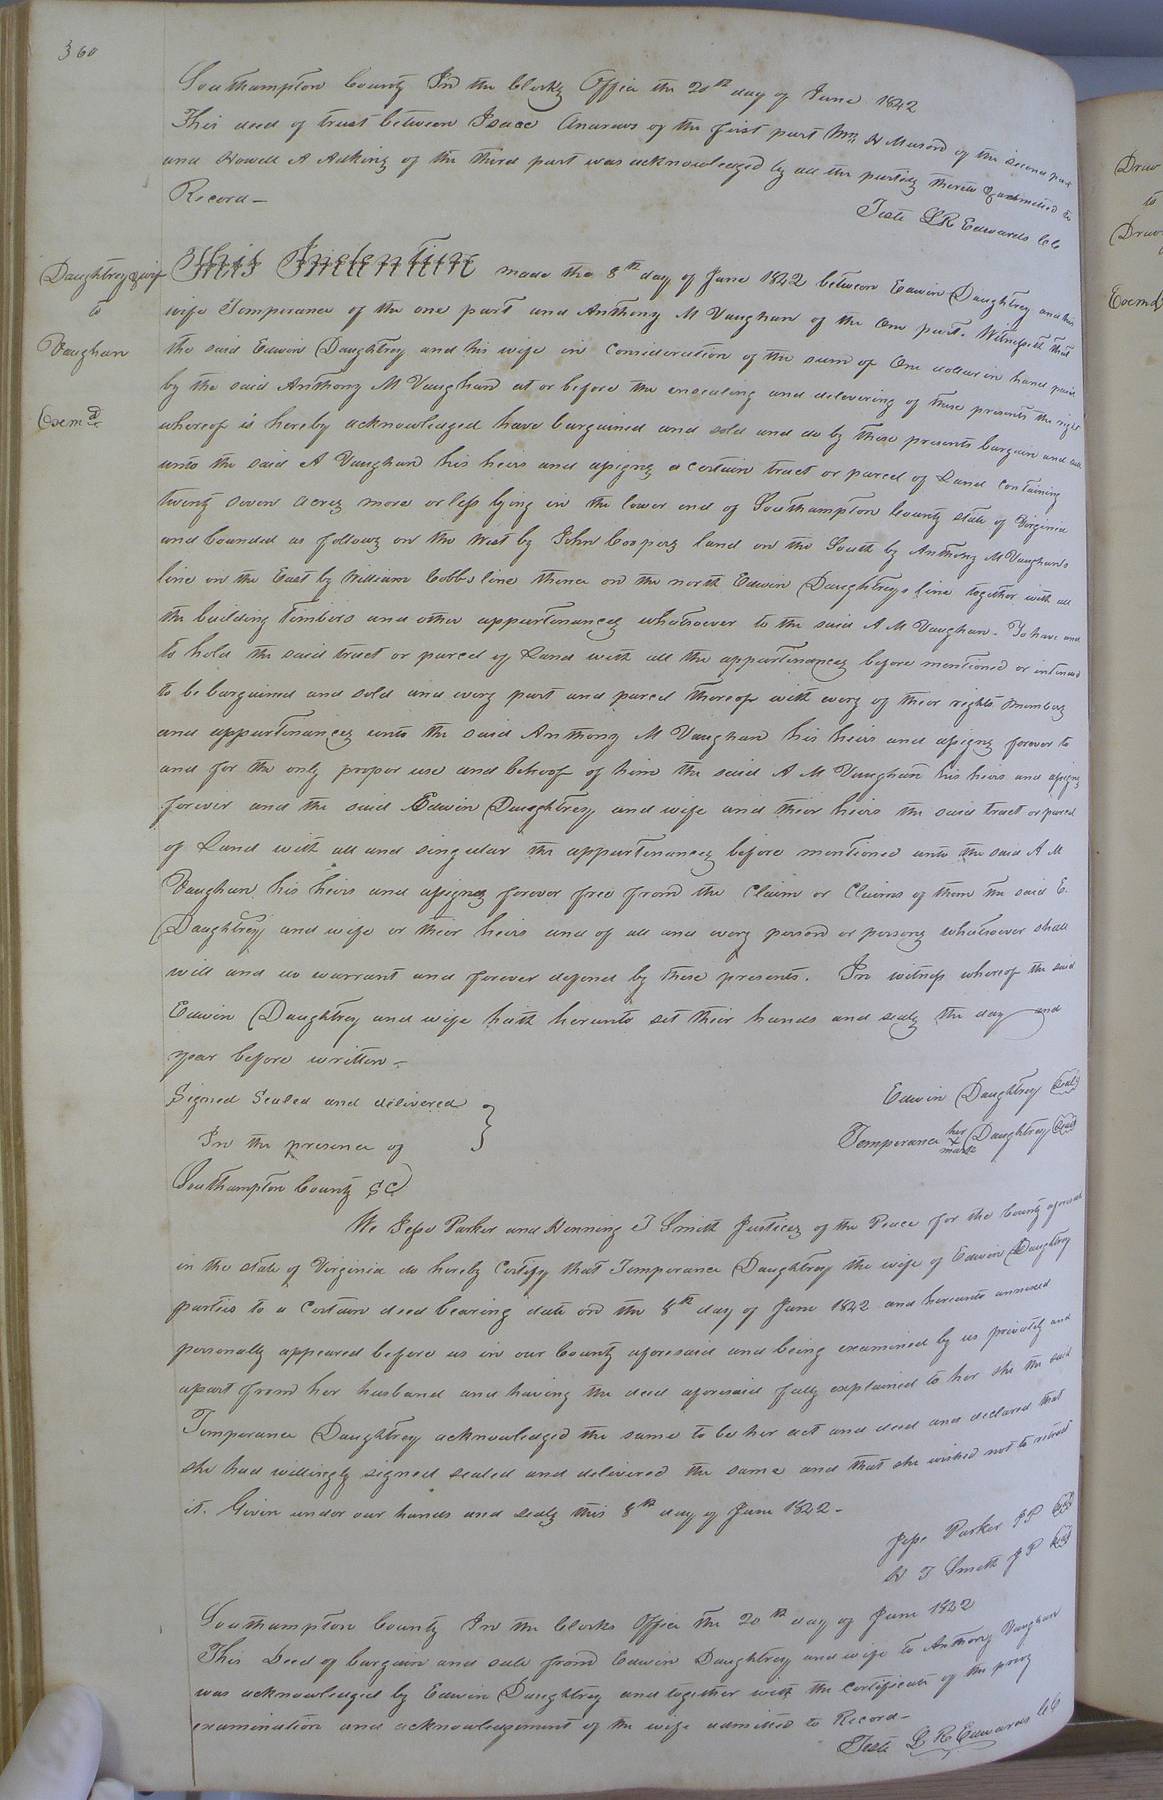 360
Southampton County In the Clerks Office the 20th day of June 1842
This deed of trust between Isaac Andrews of the first part Wm H Musord of the second part
and Howell A Adkins of the third part was acknowledged by all the parties thereto & admitted to
Record—
Teste L R Edwards CC
Daughtrey & wife
to
Vaughan
Exemd
This Indenture made the 8th day of June 1842 between Edwin Daughtrey and his
wife Temperance of the one part and Anthony M Vaughan of the One part. Witnesseth that
the said Edwin Daughtrey and his wife in Consideration of the sum of One dollar in hand paid
by the said Anthony M Vaughan at or before the ensealing and delivering of these presents the right
whereof is hereby acknowledged have bargained and sold and do by these presents bargain and sell
unto the said A Vaughan his heirs and assigns a certain tract or parcel of Land containing
twenty seven acres more or less lying in the lower end of Southampton County state of Virginia
and bounded as follows on the West by John Coopers land on the South by Anthony M Vaughans
line on the East by William Cobbs line thence on the north Edwin Daughtreys line together with all
the building timbers and other appurtenances whatsoever to the said A M Vaughan. To have and
to hold the said tract or parcel of Land with all the appurtenances before mentioned or intened
to be bargained and sold and every part and parcel thereof with every of their rights members
and appurtenances unto the said Anthony M Vaughan his heirs and assigns forever to
and for the only proper use and behoof of him the said A M Vaughan his heirs and assigns
forever and the said Edwin Daughtrey and wife and their heirs the said tract or parcel
of Land with all and singular the appurtenances before mentioned unto the said A M
Vaughan his heirs and assigns forever free from the Claim or Claims of them the said E.
Daughtrey and wife or their heirs and of all and every person or persons whatsoever shall
will and do warrant and forever defend by these presents. In witness whereof the said
Edwin Daughtrey and wife hath herunto set their hands and seals the day and
year before written—
Signed Sealed and delivered }
In the presence of
Edwin Daughtrey Seal
Temperance her X mark Daughtrey Seal
Southampton County SC
We Jesse Parker and Henning T Smith Justices of the Peace for the County aforesaid
in the state of Virginia do hereby Certify that Temperance Daughtrey the wife of Edwin Daughtrey
parties to a Certain deed bearing date on the 8th day of June 1842 and hereunto annexed
personally appeared before us in our County aforesaid and being examined by us privately and
apart from her husband and having the deed aforesaid fully explained to her she the said
Temperance Daughtrey acknowledged the same to be her act and deed and declared that
she had willingly signed sealed and delivered the same and that she wished not to retract
it. Given under our hands and seals this 8th day of June 1842—
Jesse Parker JP Seal
H T Smith JP Seal
Southampton County In the Clerks Office the 20th day of June 1842
This Deed of bargain and sale from Edwin Daughtrey and wife to Anthony Vaughan
was acknowledged by Edwin Daughtrey and together with the Certificate of the privy
examination and acknowledgement of the wife admitted to Record—
Teste L R Edwards CC
Draw
to
Draw
Exemd